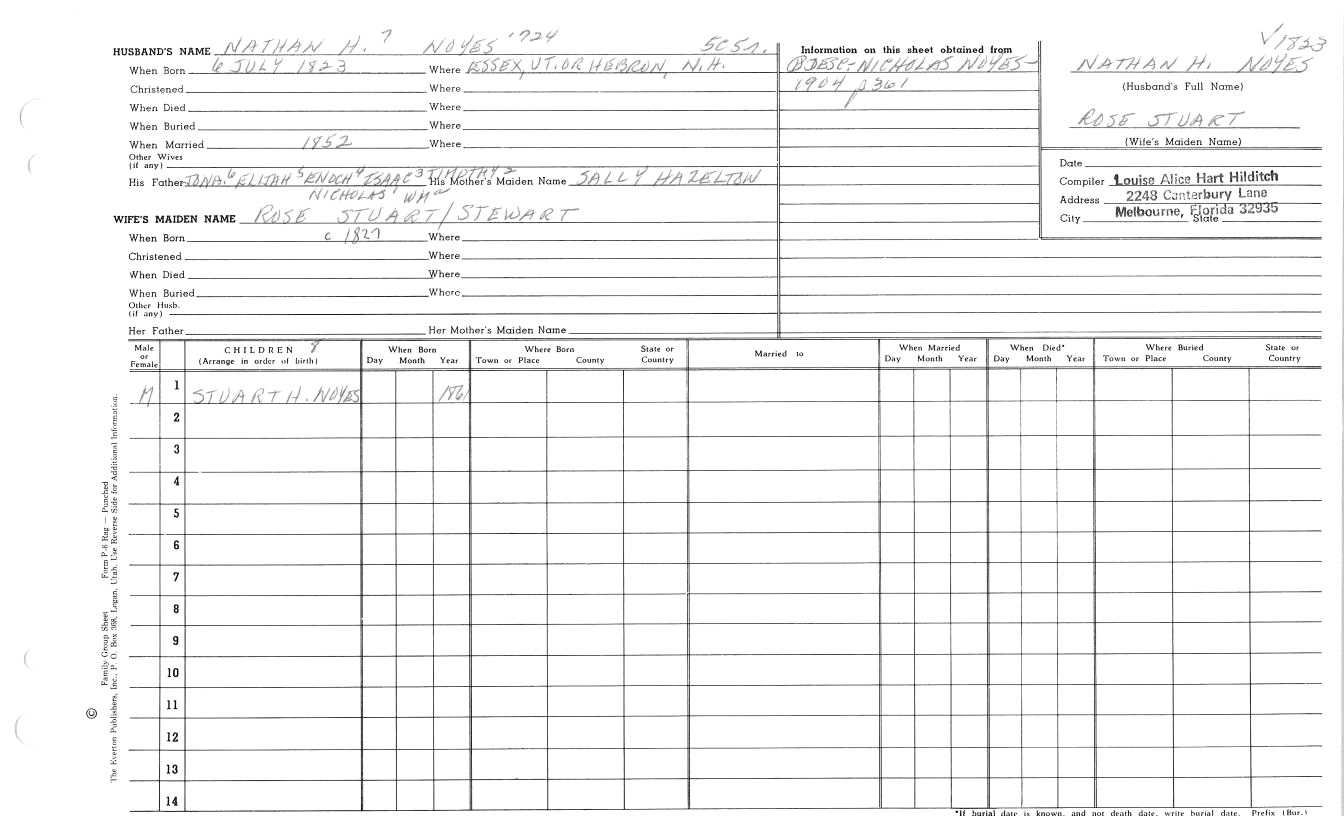 HUSBAND'S NAME NATHAN H. 7 NOYES '724 5C51.
When Born 6 JULY 1823 Where ESSEX, VT. OR HEBRON, N.H.
Christened Where
When Died Where
When Buried Where
When Married 1852 Where
Other Wives
(if any)
His Father JONA.6 ELIJAH5 ENOCH4 ISAAC3 TIMOTHY2 His Mother's Maiden Name SALLY HAZELTON
NICHOLAS1 WMa
WIFE'S MAIDEN NAME ROSE STUART/STEWART
When Born c 1827 Where
Christened Where
When Died Where
When Buried Where
Other Husb.
(if any)
Her Father Her Mother's Maiden Name
Information on this sheet obtained from
DESC-NICHOLAS NOYES-
1904 p361
√1823
NATHAN H. NOYES
(Husband's Full Name)
ROSE STUART
(Wife's Maiden Name)
Date
Compiler Louise Alice Hart Hilditch
Address 2248 Canterbury Lane
City Melbourne, Florida 32935 State
Male or Female
CHILDREN 8
(Arrange in order of birth)
When Born
Day Month Year
Where Born
Town or Place County
State or Country
Married to
When Married
Day Month Year
When Died*
Day Month Year
Where Buried
Town or Place County
State or Country
M 1 STUART H. NOYES 1861
2
3
4
5
6
7
8
9
10
11
12
13
14
*If burial date is known, and not death date, write burial date. Prefix (Bur.)
© Family Group Sheet Form P-8 Rag — Punched
The Everton Publishers, Inc., P. O. Box 368, Logan, Utah. Use Reverse Side for Additional Information.